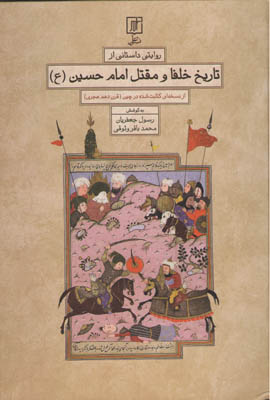 روایتی داستانی از
تاریخ خلفا و مقتل امام حسین (ع)
از نسخه‌ای کتابت شده در چین (قرن دهم هجری)
به کوشش
رسول جعفریان
محمد باقر وثوقی